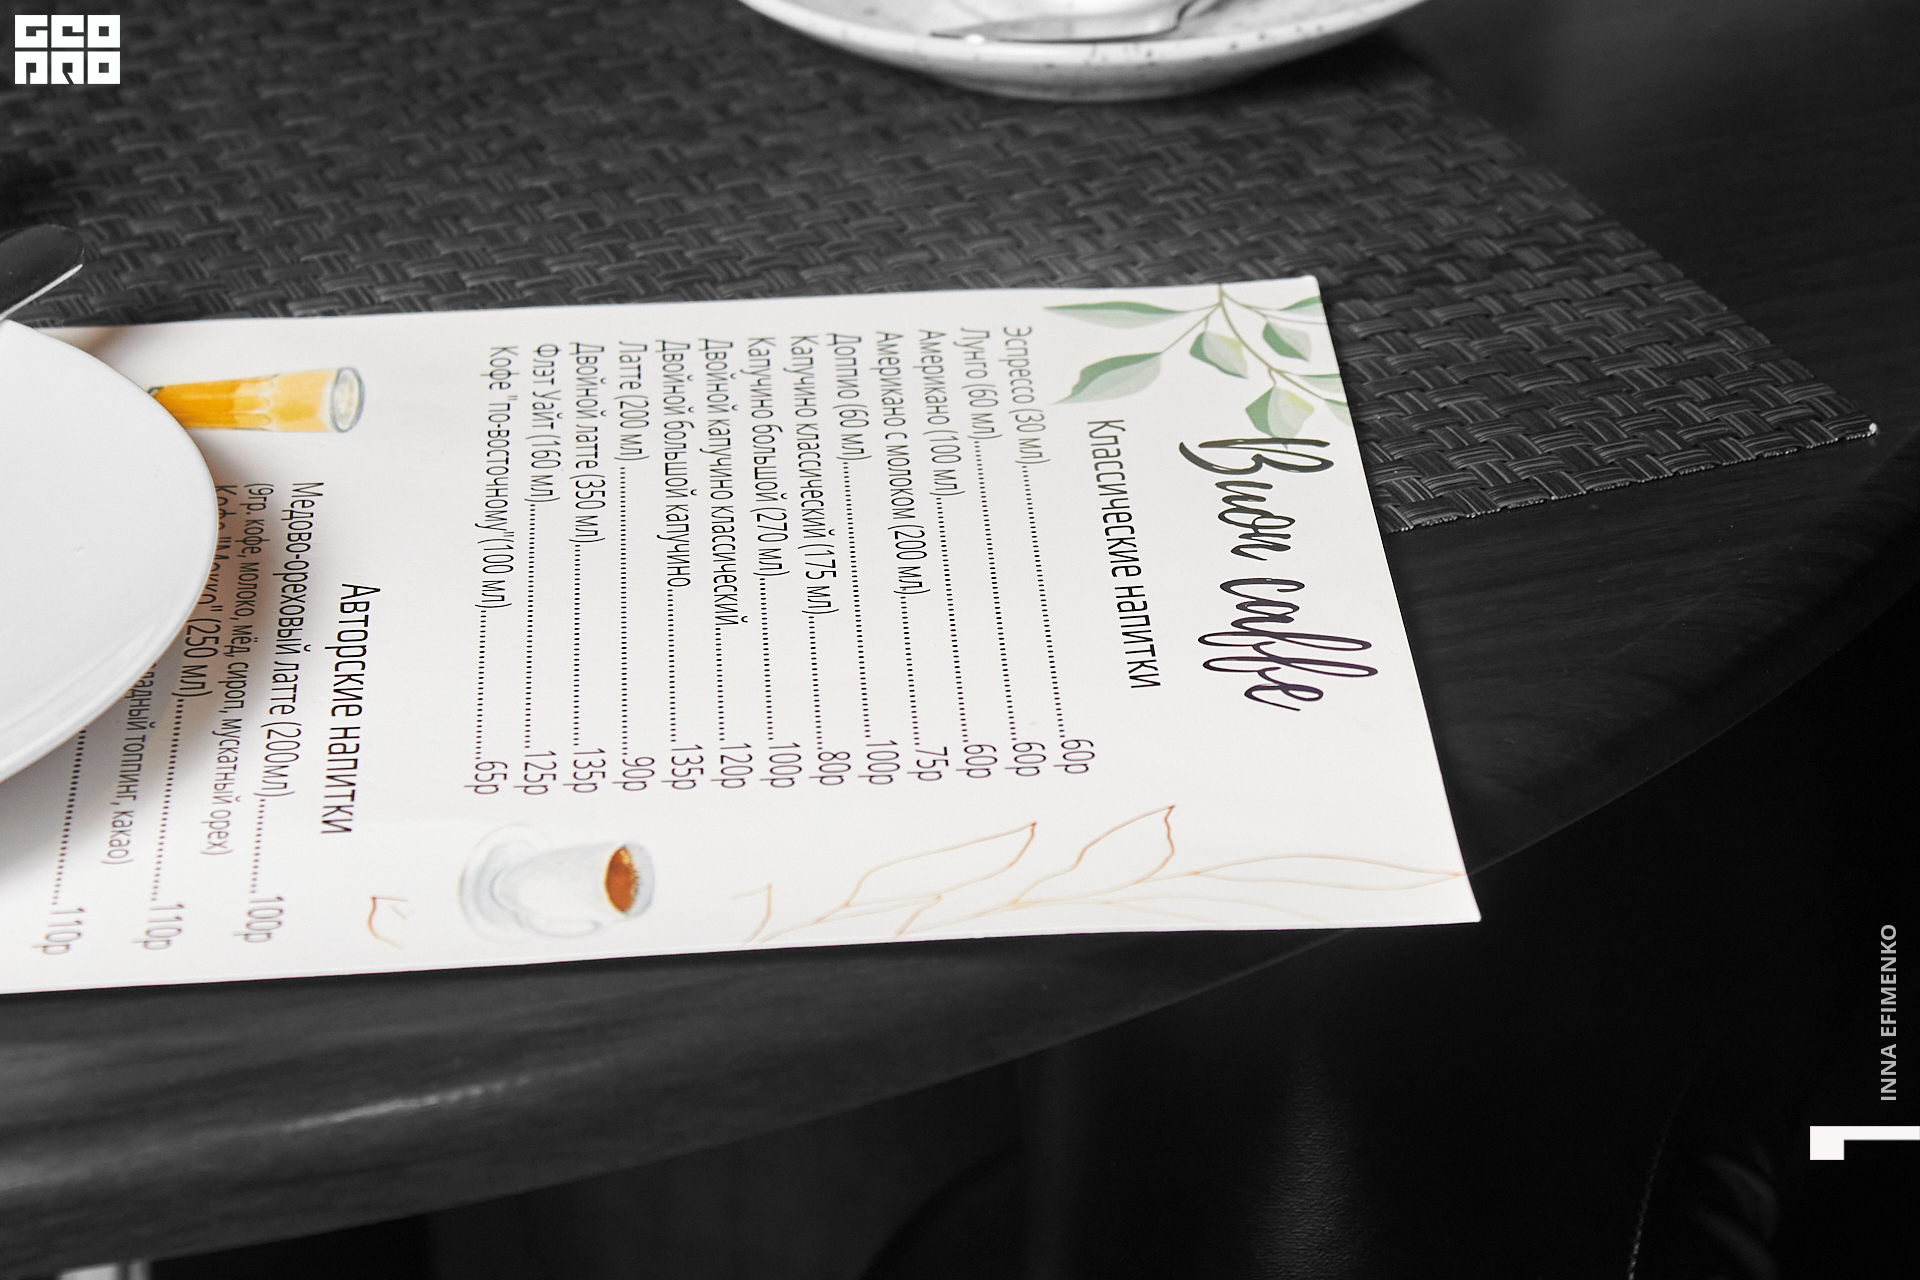 GEO
PRO
Buon caffe
Классические напитки
Эспрессо (30 мл)......60р
Лунго (60 мл)......60р
Американо (100 мл)......60р
Американо с молоком (200 мл)......75р
Доппио (60 мл)......100р
Капучино классический (175 мл)......80р
Капучино большой (270 мл)......100р
Двойной капучино классический......120р
Двойной большой капучино......135р
Латте (200 мл)......90р
Двойной латте (350 мл)......135р
Флэт Уайт (160 мл)......125р
Кофе "по-восточному"(100 мл)......65р
Авторские напитки
Медово-ореховый латте (200мл)......100р
(9гр. кофе, молоко, мёд, сироп, мускатный орех)
(250 мл)......110р
топпинг, какао)
......110р
INNA EFIMENKO